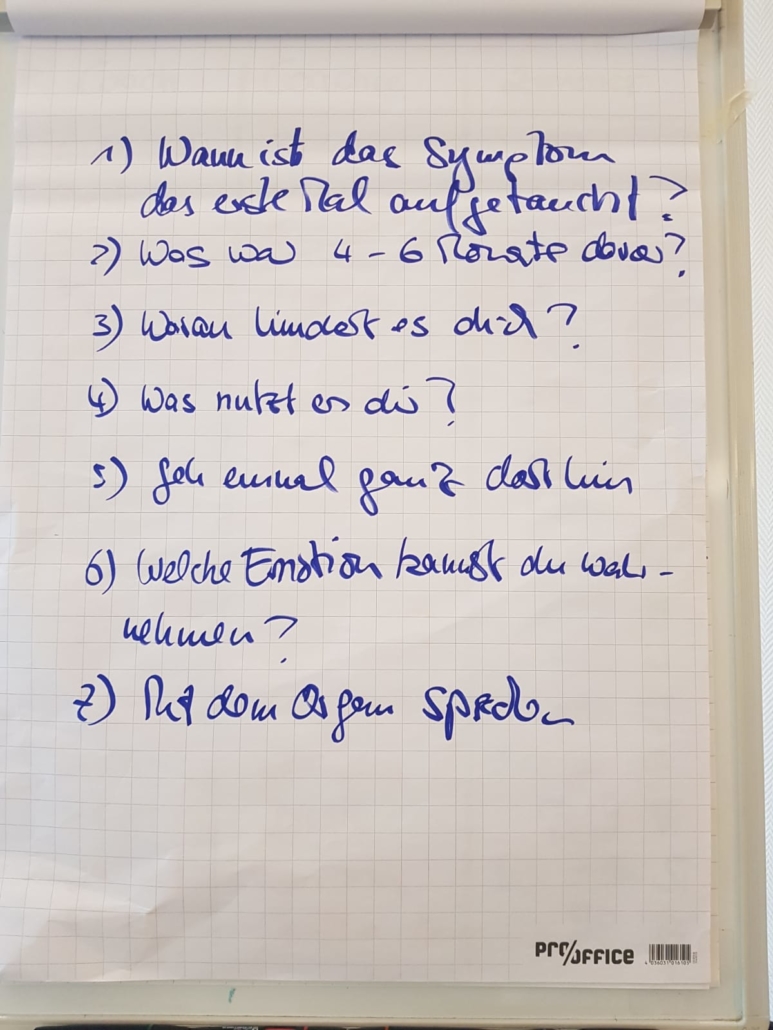 1) Wann ist das Symptom
das erste Mal aufgetaucht?
2) Was war 4 - 6 Monate davor?
3) Woran hindert es dich?
4) Was nutzt es dir?
5) Geh einmal ganz dort hin
6) Welche Emotion kannst du wahr-
nehmen?
7) Mit dem Organ sprechen
PRO/OFFICE